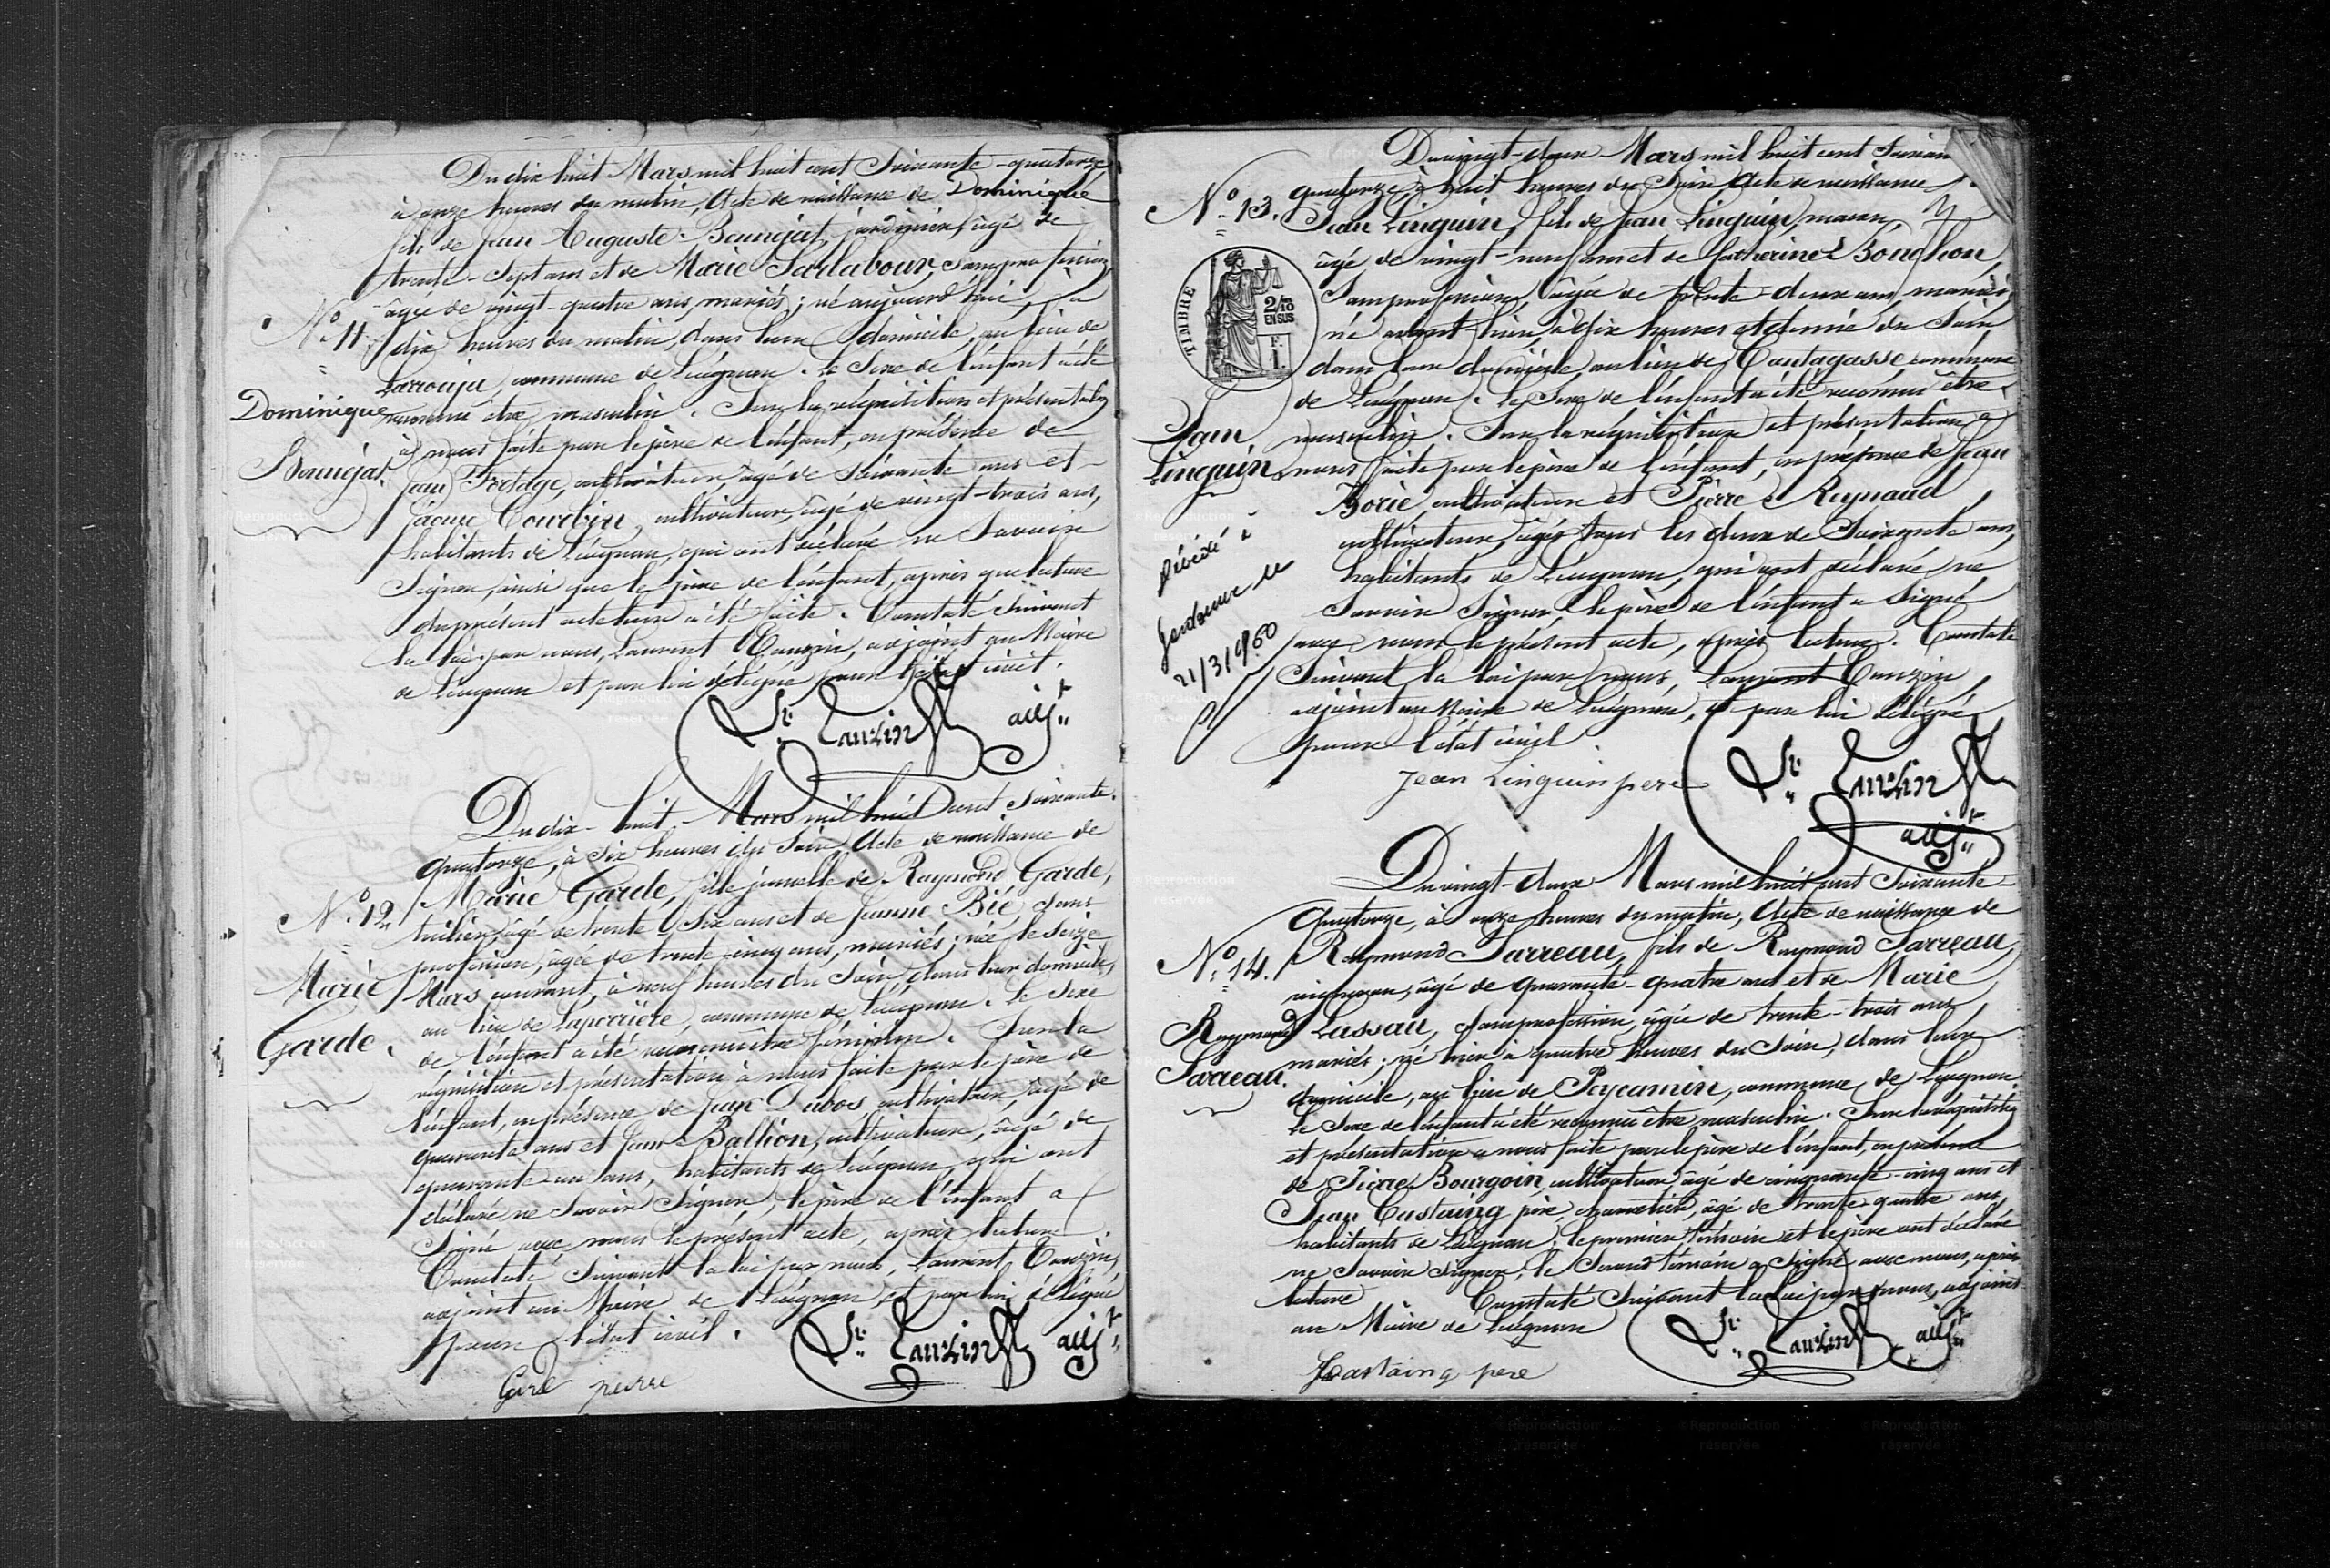 Du dix huit Mars mil huit cent Soixante-quatorze
à onze heures du matin, Acte de naissance de Dominique
fils de Jean Auguste Bounéjat, jardinier, âgé de
trente-Sept ans et de Marie Sarlabour, Sans profession,
âgée de vingt-quatre ans, mariés; né aujourd'hui, à
N° 11
dix heures du matin, dans leur domicile, au lieu de
Larrouja, commune de Léognan. Le Sexe de l'enfant a été
Dominique
Bounéjat.
reconnu être masculin. Sur la réquisition et présentation
à nous faite par le père de l'enfant, en présence de
Jean cultivateur, âgé de Soixante ans et
Jacque Courbin, cultivateur, âgé de vingt-trois ans,
habitants de Léognan, qui ont déclaré ne Savoir
Signer, ainsi que le père de l'enfant, après que lecture
du présent acte leur a été faite. Constaté Suivant
la loi par nous, Laurent Cauzin, adjoint au Maire
de Léognan et par lui délégué pour l'état civil.
Lt Cauzin adjt
Du dix-huit Mars mil huit cent Soixante-
quatorze, à Six heures du Soir, Acte de naissance de
N° 12
Marie Garde, fille jumelle de Raymond Garde,
tuilier, âgé de trente Six ans et de Jeanne Bié Sans
profession, agée de trente-cinq ans, mariés; née le Seize
Marie
Garde.
Mars courant, à neuf heures du Soir, dans leur domicile,
au lieu de Laperrière, commune de Léognan. Le Sexe
de l'enfant a été reconnu être féminin. Sur la
réquisition et présentation à nous faite par le père de
l'enfant, en présence de Jean Dubos cultivateur, âgé de
quarante ans et Jean Ballion, cultivateur, âgé de
quarante un ans, habitants de Léognan, qui ont
déclaré ne Savoir Signer, le père de l'enfant a
Signé avec nous le présent acte, après lecture.
Constaté Suivant la loi par nous, Laurent Cauzin,
adjoint au Maire de Léognan, et par lui délégué
pour l'état civil.
Lt Cauzin adjt
Du vingt-deux Mars mil huit cent Soixan
N° 13.
quatorze, à huit heures du Soir Acte de naissance
Jean Linguin, fils de Jean Linguin, maçon,
âgé de vingt-neuf ans et de Catherine Bouchon,
Sans profession, âgée de trente-deux ans, mariés,
né avant hier, à dix heures et demie du Soir
dans leur domicile, au lieu de Cantagasse commune
de Léognan. Le Sexe de l'enfant a été reconnu être
TIMBRE
2/10
EN SUS
F.
1.
Jean
Linguin
masculin. Sur la réquisition et présentation à
nous faite par le père de l'enfant, en présence de Jean
Borie, cultivateur et Pierre Reynaud,
cultivateur, âgés tous les deux de Soixante ans,
habitants de Léognan, qui ont déclaré ne
Savoir Signer, le père de l'enfant a Signé
avec nous le présent acte, après lecture. Constaté
Suivant la loi par nous, Laurent Cauzin,
adjoint au Maire de Léognan, et par lui délégué
pour l'état civil.
Décédé à
le
21/3/1960
Jean Linguin pere
Lt Cauzin
adjt
Du vingt-deux Mars mil huit cent Soixante-
quatorze, à onze heures du matin, Acte de naissance de
N° 14.
Raymond Sarreau, fils de Raymond Sarreau,
vigneron, âgé de quarante-quatre ans et de Marie
Raymond
Sarreau.
Lassau, Sans profession, âgée de trente-trois ans,
mariés; né hier à quatre heures du Soir, dans leur
domicile, au lieu de Peycamin, commune de Léognan.
Le Sexe de l'enfant a été reconnu être masculin. Sur la réquisition
et présentation à nous faite par le père de l'enfant, en présence
de Pierre Bourgoin, cultivateur, âgé de cinquante-cinq ans et
Jean Castaing père, charretier, âgé de trente-quatre ans,
habitants de Léognan; le premier témoin et le père ont déclaré
ne Savoir Signer, le Second témoin a Signé avec nous, après
lecture Constaté Suivant la loi par nous, adjoint
au Maire de Léognan
Lt Cauzin adjt
Castaing pere